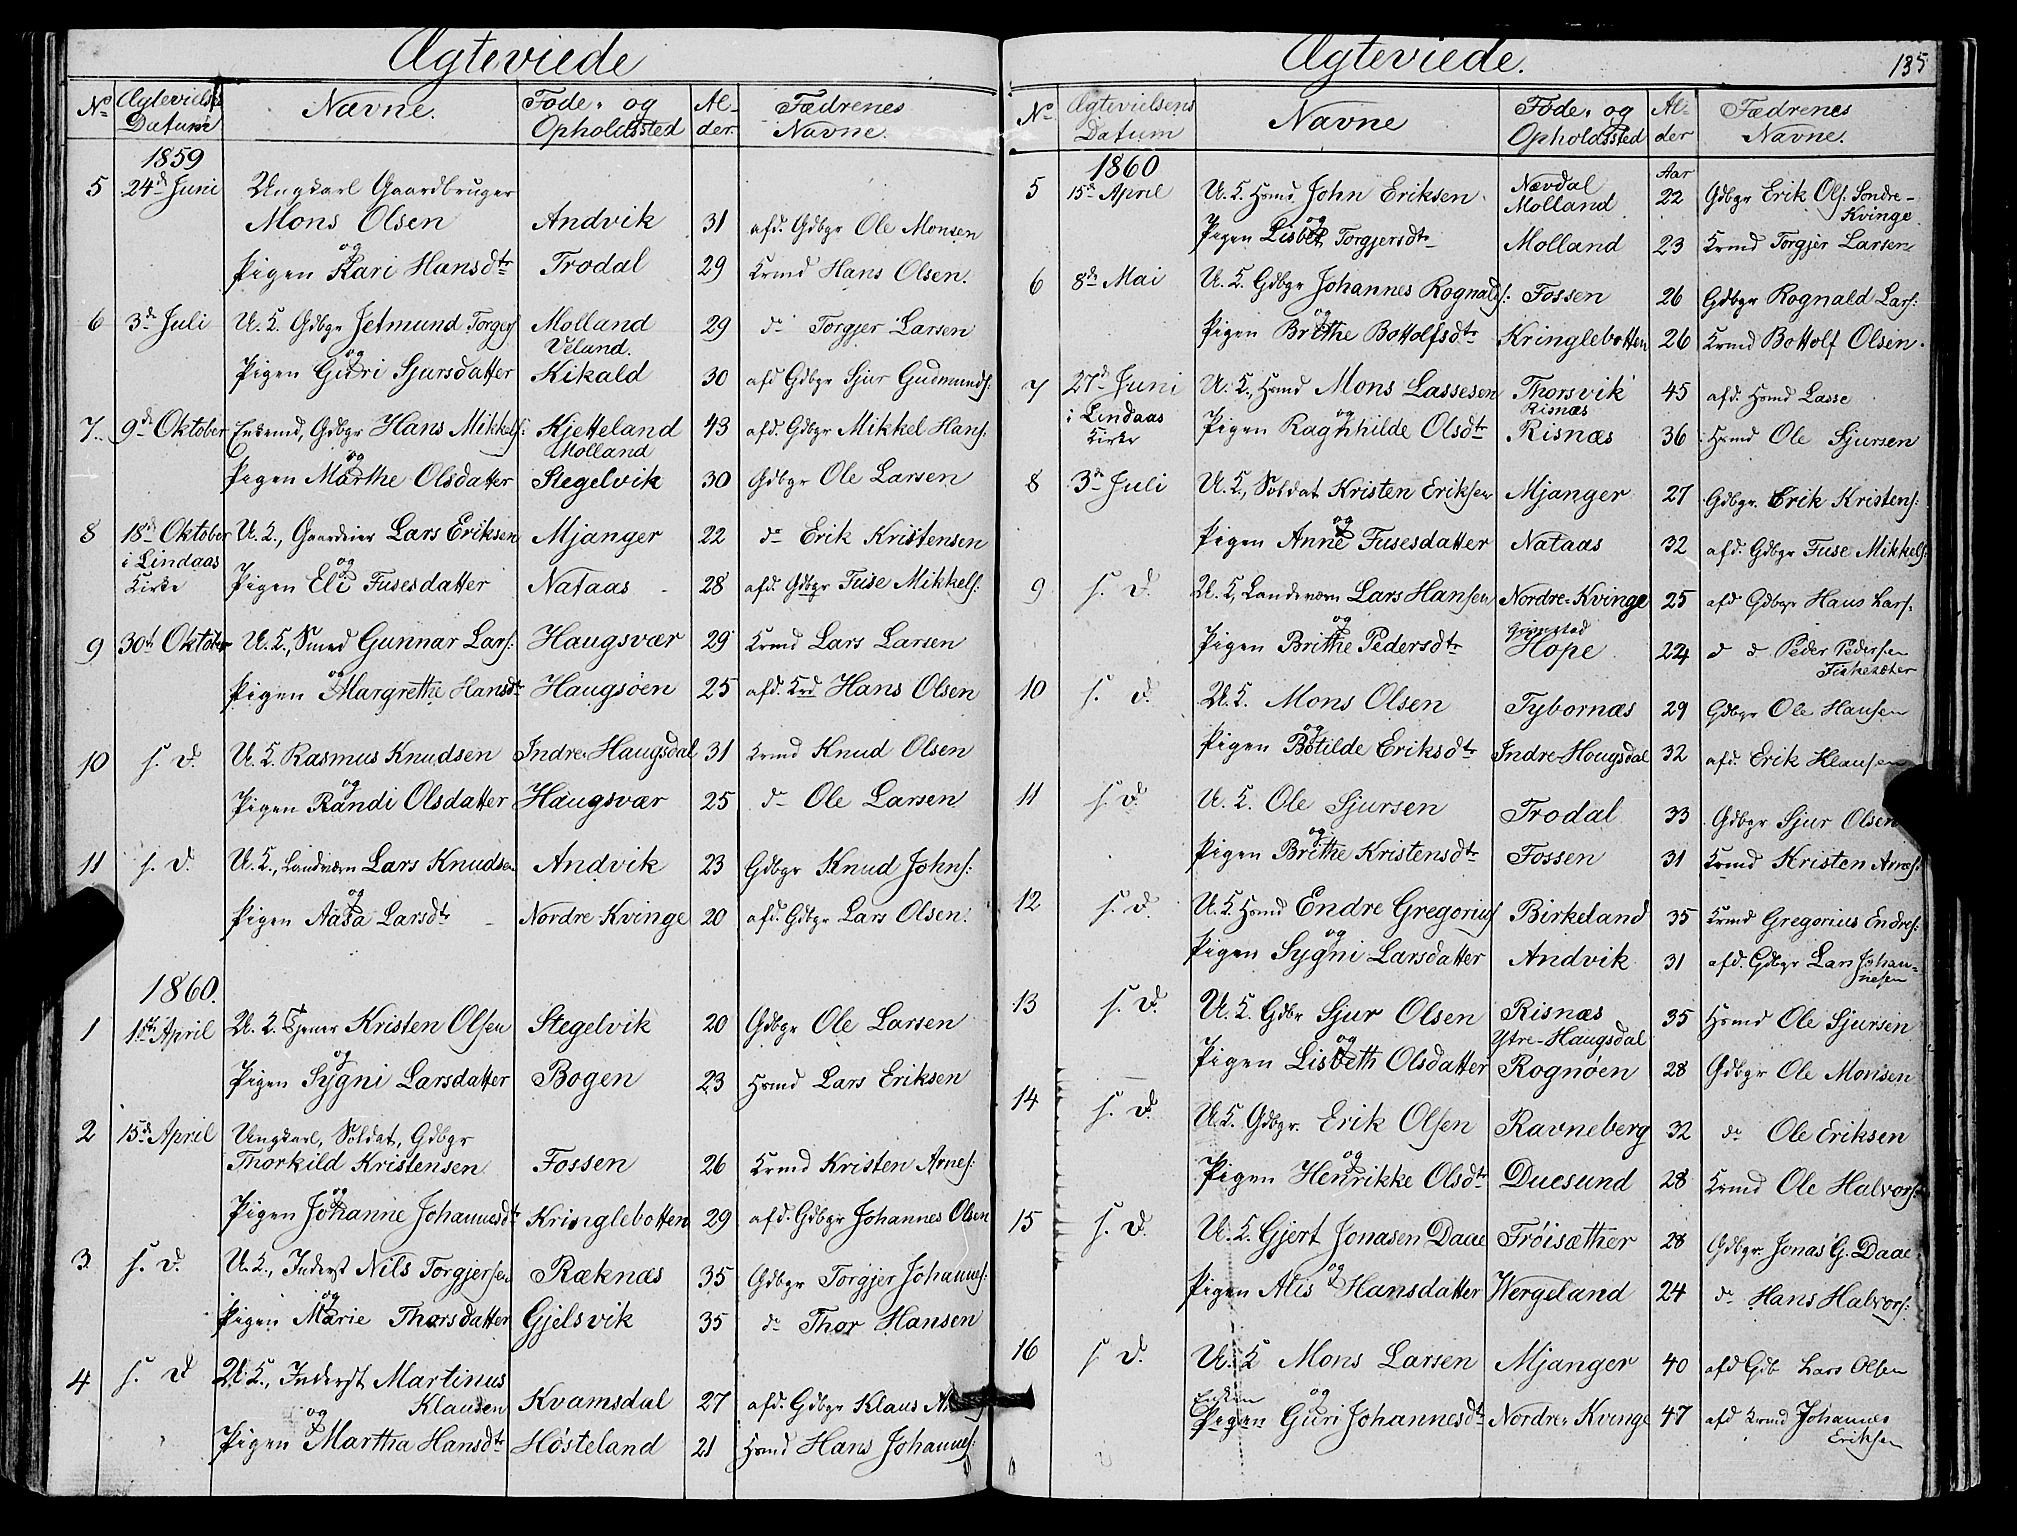 Ægteviede
No Ægtevielsens Datum Navne. Føde- og Opholdssted Al-der. Fædrenes Navne.
1859
5 24de Juni Ungkarl Gaardbruger
Mons Olsen Andvik 31 afd. Gdbgr Ole Monsen
og
Pigen Kari Hansdtr Trodal 29 Krmd Hans Olsen.
6 3de Juli U. K. Gdbgr Jetmund Torgers: Molland 29 do Torgjer Larsen
Veland.
og
Pigen Guri Sjursdatter Kikald 30 afd Gdbgr Sjur Gudmunds:
7 9de Oktober Enkemd, Gdbgr Hans Mikkels: Kjetteland 43 afd. Gdbgr Mikkel Hans:
Molland
og
Pigen Marthe Olsdatter Stegelvik 30 Gdbgr Ole Larsen
8 18de Oktober U. K., Gaardeier Lars Eriksen Mjanger 22 do Erik Kristensen
i Lindaas og
Kirke Pigen Eli Fusesdatter Nataas 28 afd. Gdbgr Fuse Mikkels:
9 30te Oktober U. K., Smed Gunnar Lars: Haugsvær 29 Krmd Lars Larsen
og
Pigen Margrethe Hansdtr Haugsøen 25 afd. Krd Hans Olsen
10 s. D. U. K. Rasmus Knudsen Indre-Haugsdal 31 Krmd Knud Olsen
og
Pigen Randi Olsdatter Haugsvær 25 do Ole Larsen
11 s. D. U. K., Landværn Lars Knudsen Andvik 23 Gdbgr Knud Johns:
og
Pigen Aasa Larsdtr Nordre Kvinge 20 afd. Gdbgr Lars Olsen.
1860.
1 1ste April U. K. Tjener Kristen Olsen Stegelvik 20 Gdbgr Ole Larsen
og
Pigen Sygni Larsdatter Bogen 23 Hsmd Lars Eriksen
2 15de April Ungkarl, Soldat, Gdbgr
Thorkild Kristensen Fossen 26 Krmd Kristen Arnes:
og
Pigen Johanne Johannesdtr Kringlebotten 29 afd. Gdbgr Johannes Olsen
3 s. D. U. K., Inderst Nils Torgjersen Ræknæs 35 Gdbgr Torgjer Johannes:
og
Pigen Marie Thorsdatter Gjelsvik 35 do Thor Hansen
4 s. D U. K., Inderst Martinus
Klausen Kvamsdal 27 afd. Gdbgr Klaus
og
Pigen Martha Hansdtr Høsteland 21 Hsmd Hans Johannes:
Ægteviede. 135
No Ægtevielsens Datum Navne Føde- og Opholdssted Al-der Fædrenes Navne.
1860 Aar
5 15de April U. K. Hsmd John Eriksen Nævdal 22 Gdbgr Erik Ols: Søndre-
Molland Kvinge
og
Pigen Lisbet Torgjersdtr Molland 23 Krmd Torgjer Larsen
6 8de Mai U. K. Gdbgr Johannes Rognalds: Fossen 26 Gdbgr Rognald Lars:
og
Pigen Brithe Bottolfsdtr Kringlebotten 26 Krmd Bottolf Olsen.
7 27de Juni U. K., Hsmd Mons Lassesen Thorsvik 45 afd. Hsmd Lasse
i Lindaas og Risnæs
Kirke Pigen Ragnhilde Olsdtr Risnæs 36 Hsmd Ole Sjursen
8 3de Juli U. K., Soldat Kristen Eriksen Mjanger 27 Gdbgr. Erik Kristens:
og
Pigen Anne Fusesdatter Nataas 32 afd. Gdbgr Fuse Mikkels:
9 s. D. U. K, Landeværn Lars Hansen Nordre-Kvinge 25 afd Gdbgr Hans Lars:
og Grimstad
Pigen Brithe Pedersdtr Hope 24 d d Peder Pedersen
Fiskesæter
10 s. D. U. K. Mons Olsen Tybornæs 29 Gdbgr Ole Hansen
og
Pigen Botilde Eriksdtr Indre-Hougsdal 32 afd. Erik Klausen
11 s. D. U. K. Ole Sjursen Trodal 33 Gdbgr Sjur Olsen
og
Pigen Brithe Kristensdtr Fossen 31 Krmd Kristen Arnes:
12 s. D. U. K. Hsmd Endre Gregorius: Birkeland 35 Krmd Gregorius Endres:
og
Pigen Sygni Larsdatter Andvik 31 afd. Gdbgr Lars Johan-
nesen
13 s. D. U. K. Gdbr Sjur Olsen Risnæs 35 Hsmd Ole Sjursen
og Ytre-Haugsdal
Pigen Lisbeth Olsdatter Rognøen 28 Gdbgr Ole Monsen
14 s. D. U. K. Gdbgr. Erik Olsen Ravneberg 32 do Ole Eriksen
og
Pigen Henrikke Olsdtr Duesund 28 Krmd Ole Halvors:
15 s. D. U. K. Gjert Jonasen Daae Frøisæther 28 Gdbgr. Jonas G. Daae
og
Pigen Alis Hansdatter Wergeland 24 do Hans Halvors:
16 s D. U. K Mons Larsen Mjanger 40 afd Gdb Lars Olsen
Enken og
Pigen Guri Johannesdtr Nordre-Kvinge 47 afd Krmd Johannes
Eriksen